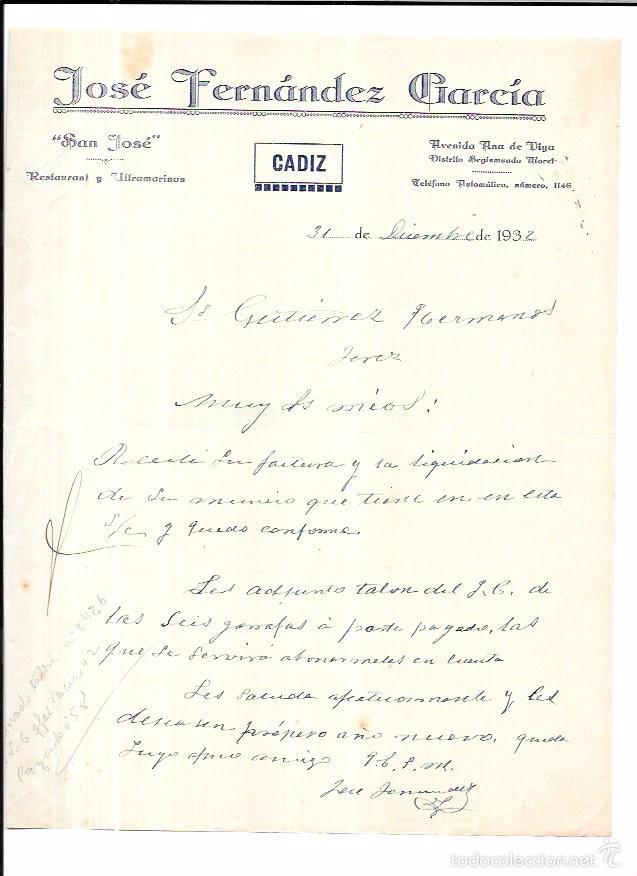 José Fernández García
"San José"
Restaurant y Ultramarinos
CADIZ
Avenida Ana de Viya
Distrito Segismundo Moret
Teléfono Automático, número, 1146
31 de Diciembre de 1932
Srs Gutiérrez Hermanos
Jerez
Muy Srs mios:
Recibi su factura y la liquidacion
de su anuncio que tiene en esta
s/c y quedo conforme.
Les adjunto talon del F.C. de
las Seis garrafas á porte pagado, las
que se servirá abonarmelas en cuenta
Les saluda afectuosamente y les
desea un próspero año nuevo, queda
suyo afmo amigo q.b.s.m.
José Fernandez
talon nº 2426
6 garrafas vacias 42
Pagado 5'58
todocoleccion.net